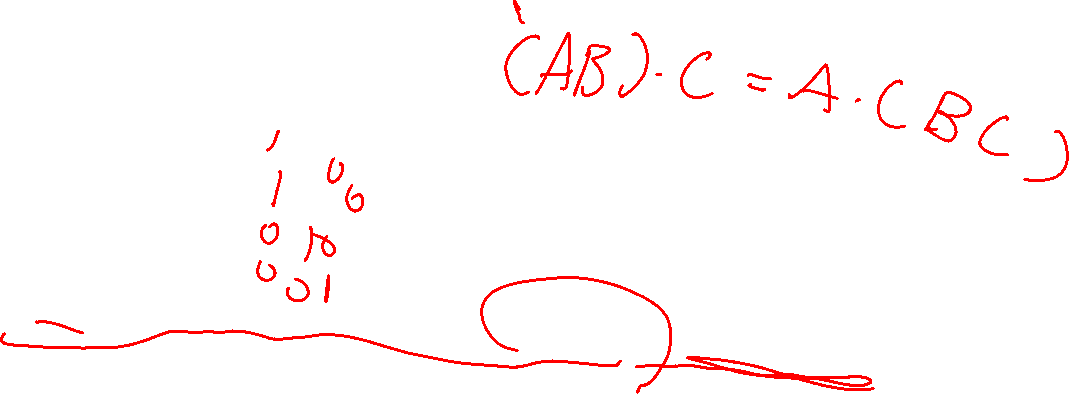 (AB)·C = A·(BC)
1 0 0
0 1 0
0 0 1